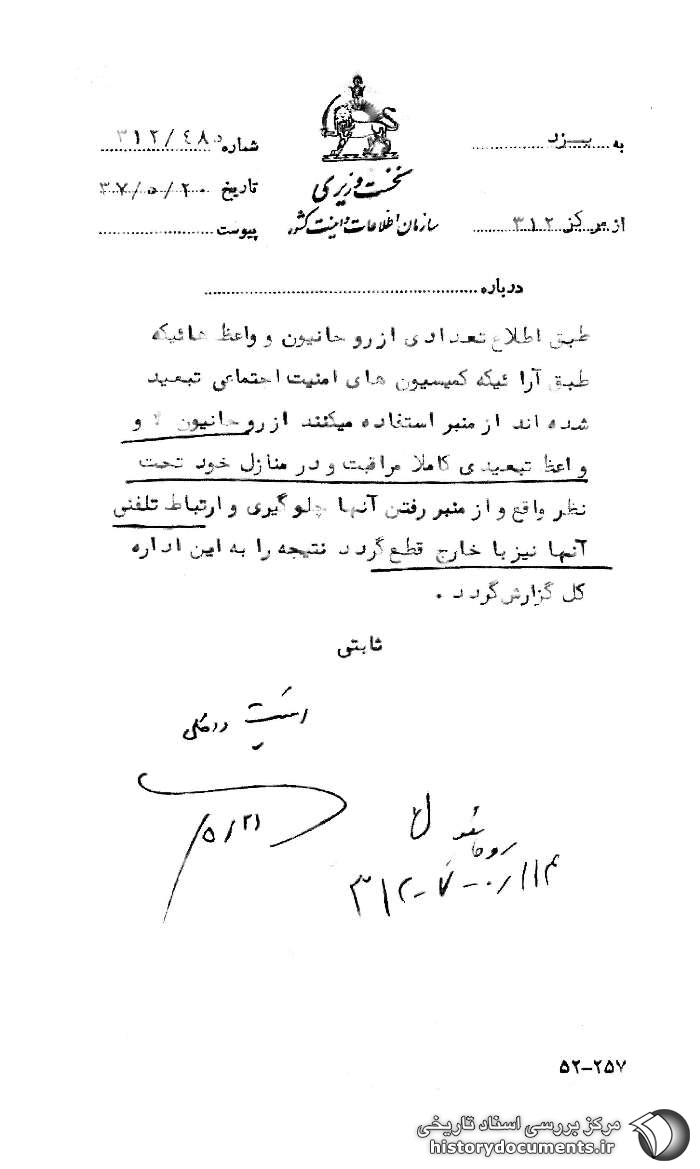 به یزد
شماره ۳۱۲/۴۸۰
نخست وزیری
تاریخ ۳۷/۵/۲۰
از مرکز ۳۱۲
سازمان اطلاعات و امنیت کشور
پیوست
درباره
طبق اطلاع تعدادی از روحانیون و واعظ هائیکه
طبق آرا ئیکه کمیسیون های امنیت اجتماعی تبعید
شده اند از منبر استفاده میکنند از روحانیون و
واعظ تبعیدی کاملا مراقبت و در منازل خود تحت
نظر واقع و از منبر رفتن آنها جلوگیری و ارتباط تلفنی
آنها نیز با خارج قطع گردد نتیجه را به این اداره
کل گزارش گردد .
ثابتی
امنیت داخلی
۵/۲۱
۳۱۲-
۵۲-۲۵۷
مرکز بررسی اسناد تاریخی
historydocuments.ir